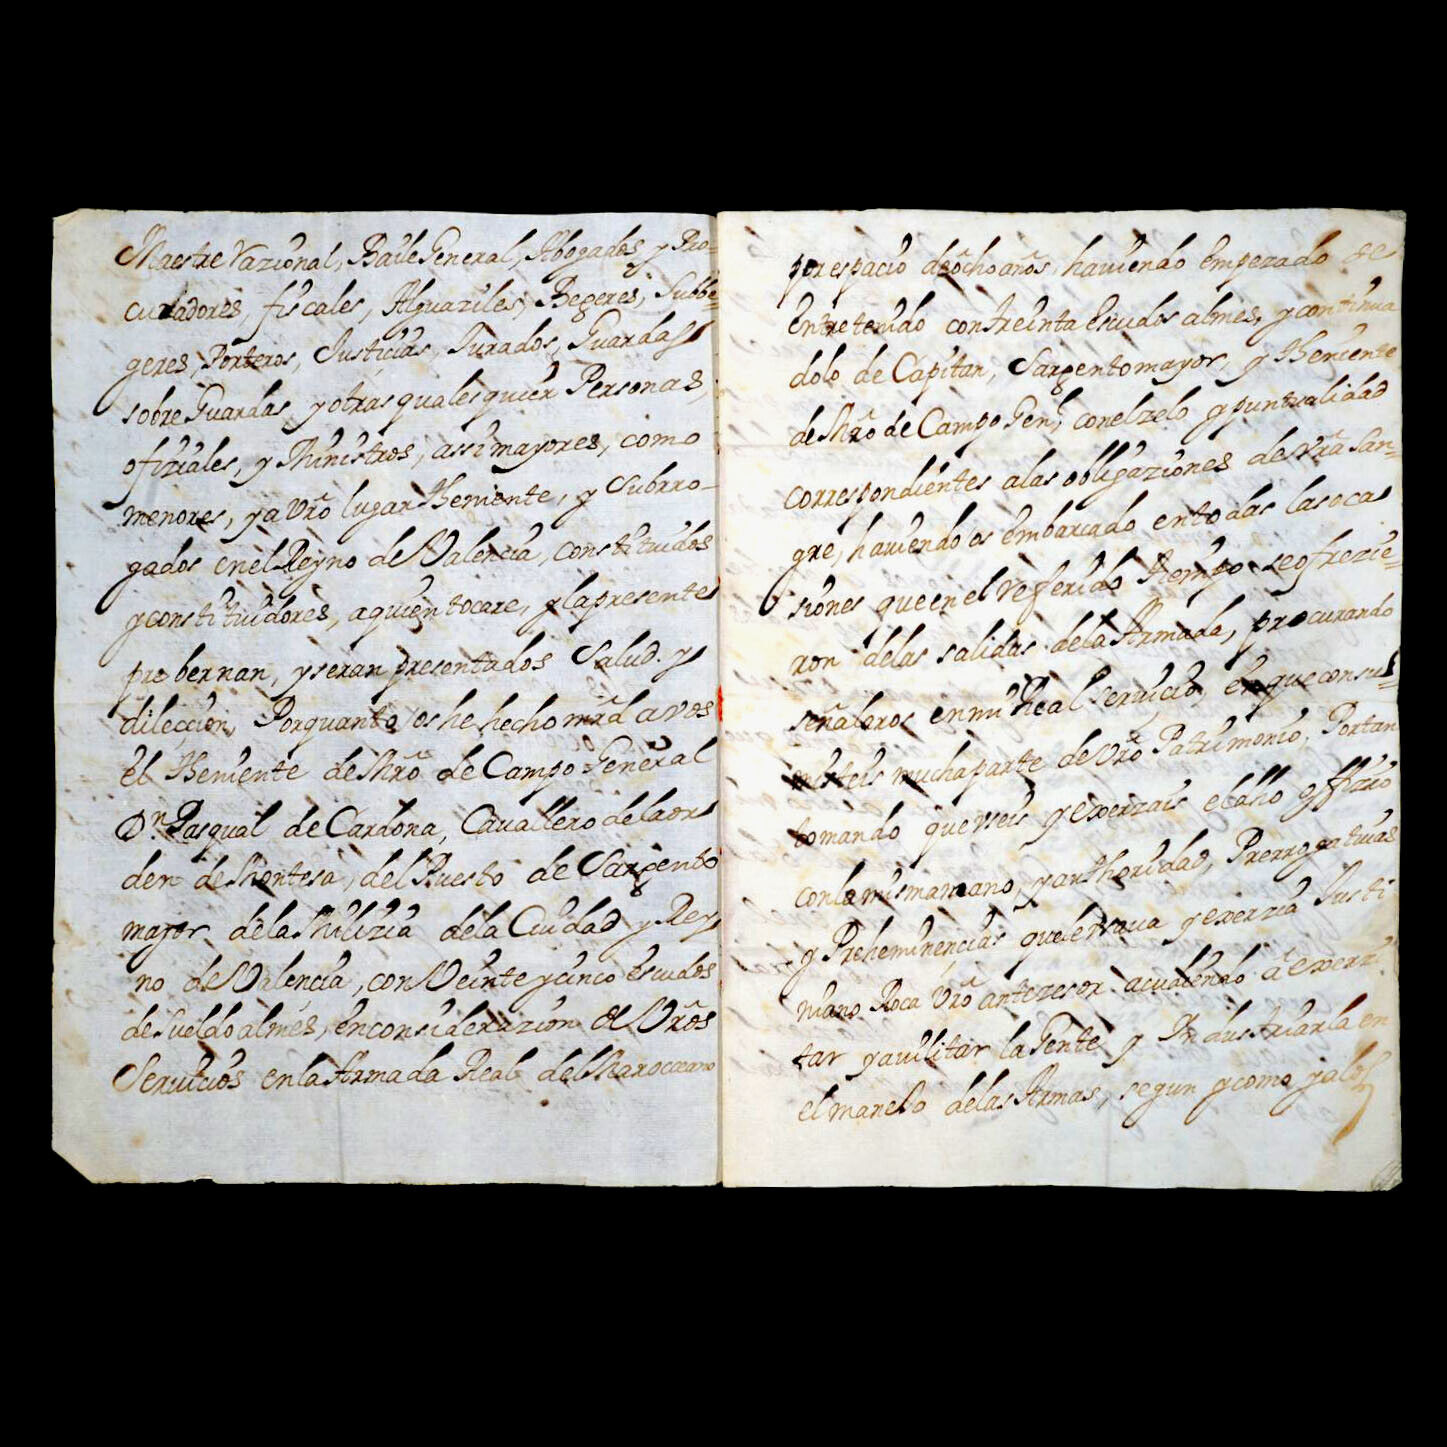 Maestre Razional, Baile General, Abogados, y Pro-
curadores, fiscales, Alguaziles, Begeres, Subbe-
geres, Porteros, Justicias, Jurados, Guardas
sobre Guardas y otras qualesquier Personas,
ofiziales, y Ministros, assi mayores, como
menores, y a Vr̃o lugar Theniente, y Subrro-
gados en el Reyno de Valencia, constituidos
y constituidores, a quien tocare, y la presente
prebernan, y seran presentados Salud. y
dileccion, Por quanto os he hecho mrd a vos
el Theniente de Mr̃o de Campo General
Dn. Pasqual de Cardona, Cavallero de la or
den de Montesa, del Puesto de Sargento
mayor de la Milizia de la Ciudad y Rey
no de Valencia, con Veinte y cinco escudos
de sueldo al mes, en considerazion de Vr̃os
Servicios en la Armada Real del Mar occeano
por espacio de ocho años, haviendo empezado de
entretenido con treinta escudos al mes, y continua
dolo de Capitan, Sargento mayor, y Theniente
de Mr̃o de Campo Genl, con el zelo y puntualidad
correspondientes a las obligaziones de vr̃a San-
gre, haviendo os embarcado en todas las oca
siones que en el referido tiempo se ofrezie-
ron de las salidas de la Armada, procurando
señalaros en mi Real servicio, en que consu-
misteis mucha parte de Vr̃o Patrimonio. Portan
to mando que useis y exerzais el dho offizio
con la misma mano, y authoridad, Prerrogativas
y Preheminencias que le usava y exerzia Justi
niano Roca Vr̃o antezesor acudiendo à exerzi
tar y avilitar la Gente y Industriarla en
el manejo de las Armas, segun y como y a los